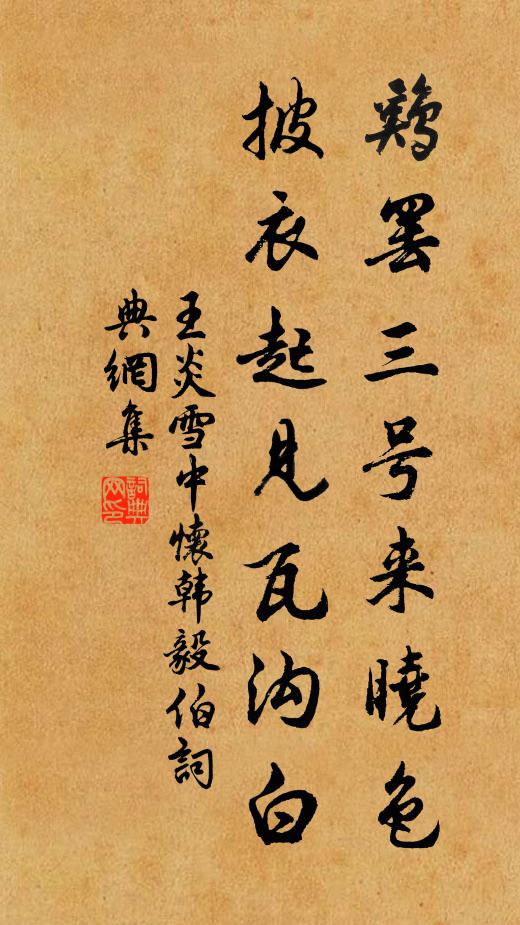 鷄罢三号来曉色
披衣起見瓦沟白
王炎雪中懷韩毅伯詞
典網集
詞典网印